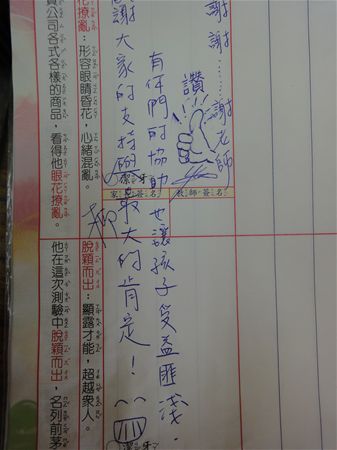 謝謝......謝老師
讚!!!
教師簽名
有你們的協助也讓孩子受益匪淺.
謝大家的支持
潔牙
最大的肯定!
潔牙
花撩亂：形容眼睛昏花，心緒混亂。
脫穎而出：顯露才能，超越眾人。
貨公司各式各樣的商品，看得他眼花撩亂。
他在這次測驗中脫穎而出，名列前茅